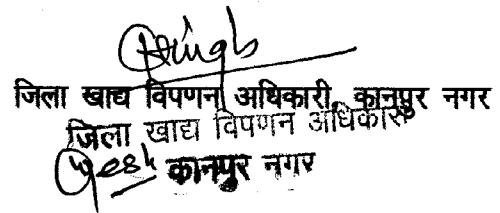 Singh
जिला खाद्य विपणन अधिकारी, कानपुर नगर
जिला खाद्य विपणन अधिकारी
कानपुर नगर